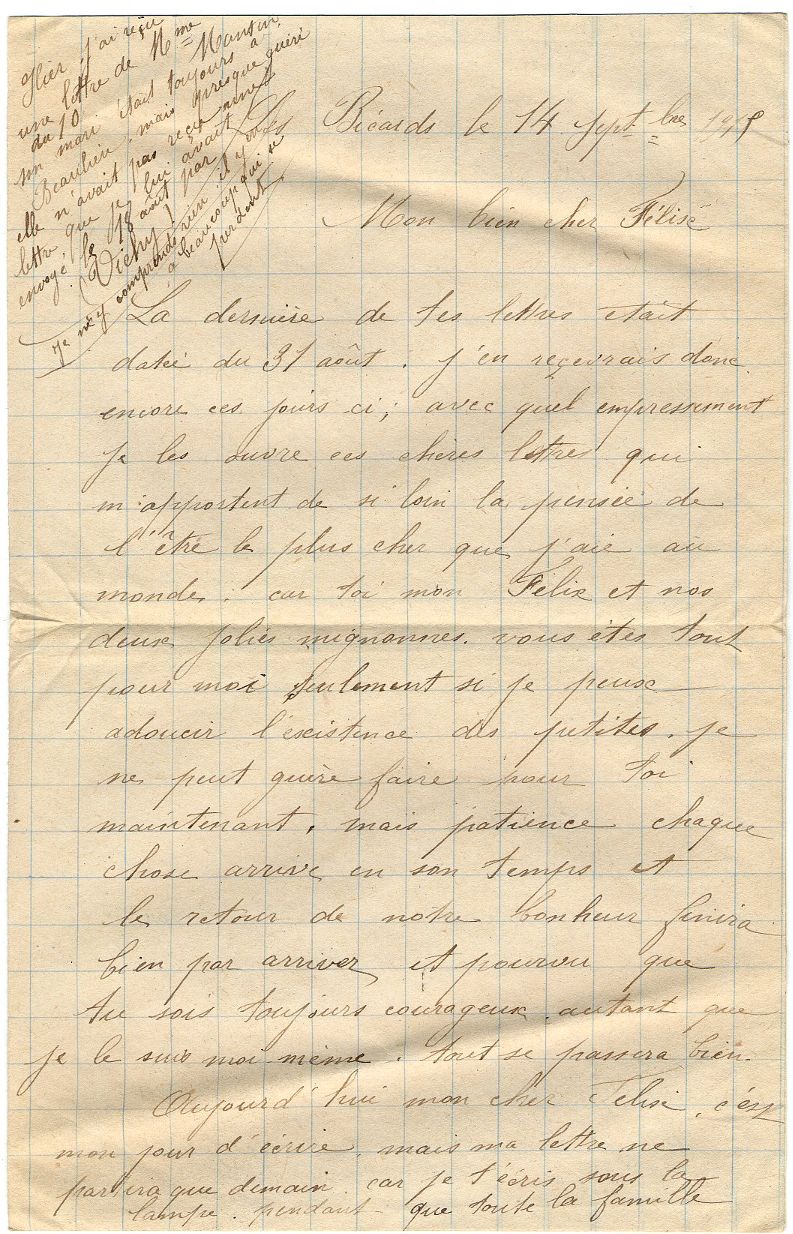 Hier j'ai reçu
une lettre de Mme Mansin
du 10
son mari était toujours à
Beaulieu mais presque guéri
elle n'avait pas reçu une
lettre que je lui avait
envoyé le 18 août par
(Vichy)
Je n'y comprends rien il y en
a beaucoup qui se
perdent
Les Bicards le 14 Septbre 191
Mon bien cher Félix
La dernière de tes lettres était
datée du 31 août. j'en reçevrais donc
encore ces jours ci; avec quel empressement
je les ouvre ces chères lettres qui
m'apportent de si loin la pensée de
l'être le plus cher que j'aie au
monde. car toi mon Félix et nos
deux jolies mignonnes. vous êtes tout
pour moi seulement si je peux
adoucir l'existence des petites. je
ne peut guère faire pour toi
maintenant, mais patience chaque
chose arrive en son temps et
le retour de notre bonheur finira
bien par arriver, et pourvu que
tu sois toujours courageux, autant que
je le suis moi même. tout se passera bien
Aujourd'hui mon cher Felix, c'est
mon jour d'écrire, mais ma lettre ne
partira que demain. car je t'écris sous la
lampe. pendant que toute la famille